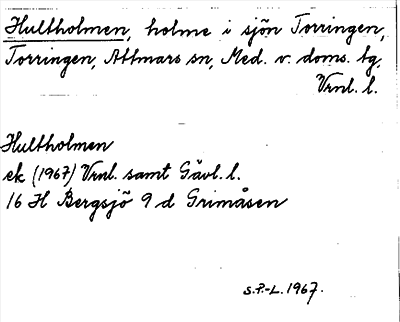 Hultholmen, holme i sjön Torringen,
Torringen, Attmars sn, Med. v. doms. tg.
Vrnl. l.
Hultholmen
ek (1967) Vrnl. samt Gävl. l.
16 H Bergsjö 9 d Grimåsen
S.P.-L. 1967.